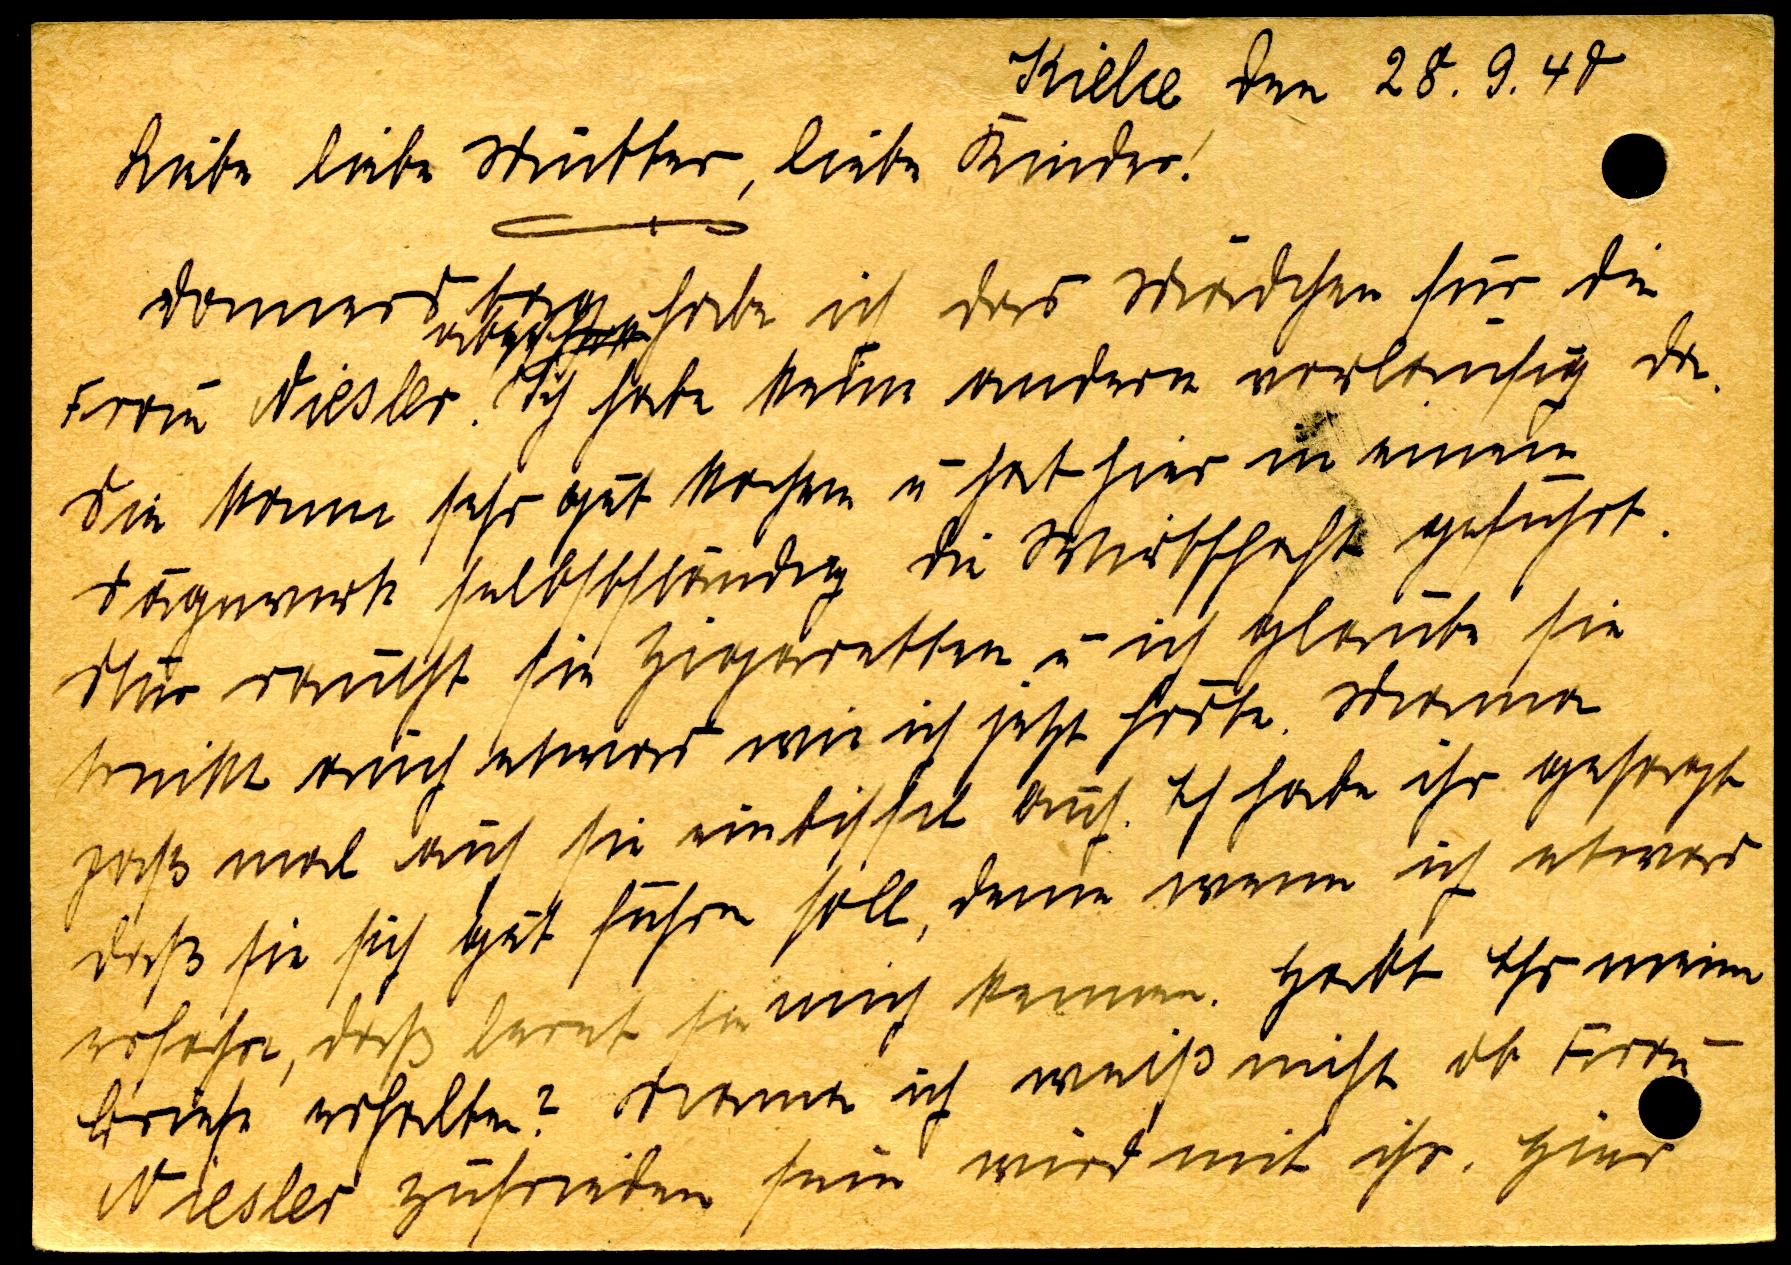 Kielce den 28. 9. 40
Liebe liebe Mutter, liebe Kinder!
Donnerstag habe ich das Mädchen für die
Frau Niesler. Ich habe keine andere vorläufig da.
Die kann sehr gut kochen u hat hier in einem
Sägewerk selbstständig die Wirtschaft geführt.
Nur raucht sie Zigaretten u ich glaube sie
trinkt auch etwas wie ich jetzt hörte. Mama
paß mal auf sie einbissel auf. Ich habe ihr gesagt
daß sie sich gut führn soll, denn wenn ich etwas
erfahre, daß lernt sie mich kennen. Habt Ihr meine
Briefe erhalten? Mama ich weiß nicht ob Frau
Niesler zufrieden sein wird mit ihr. Hier